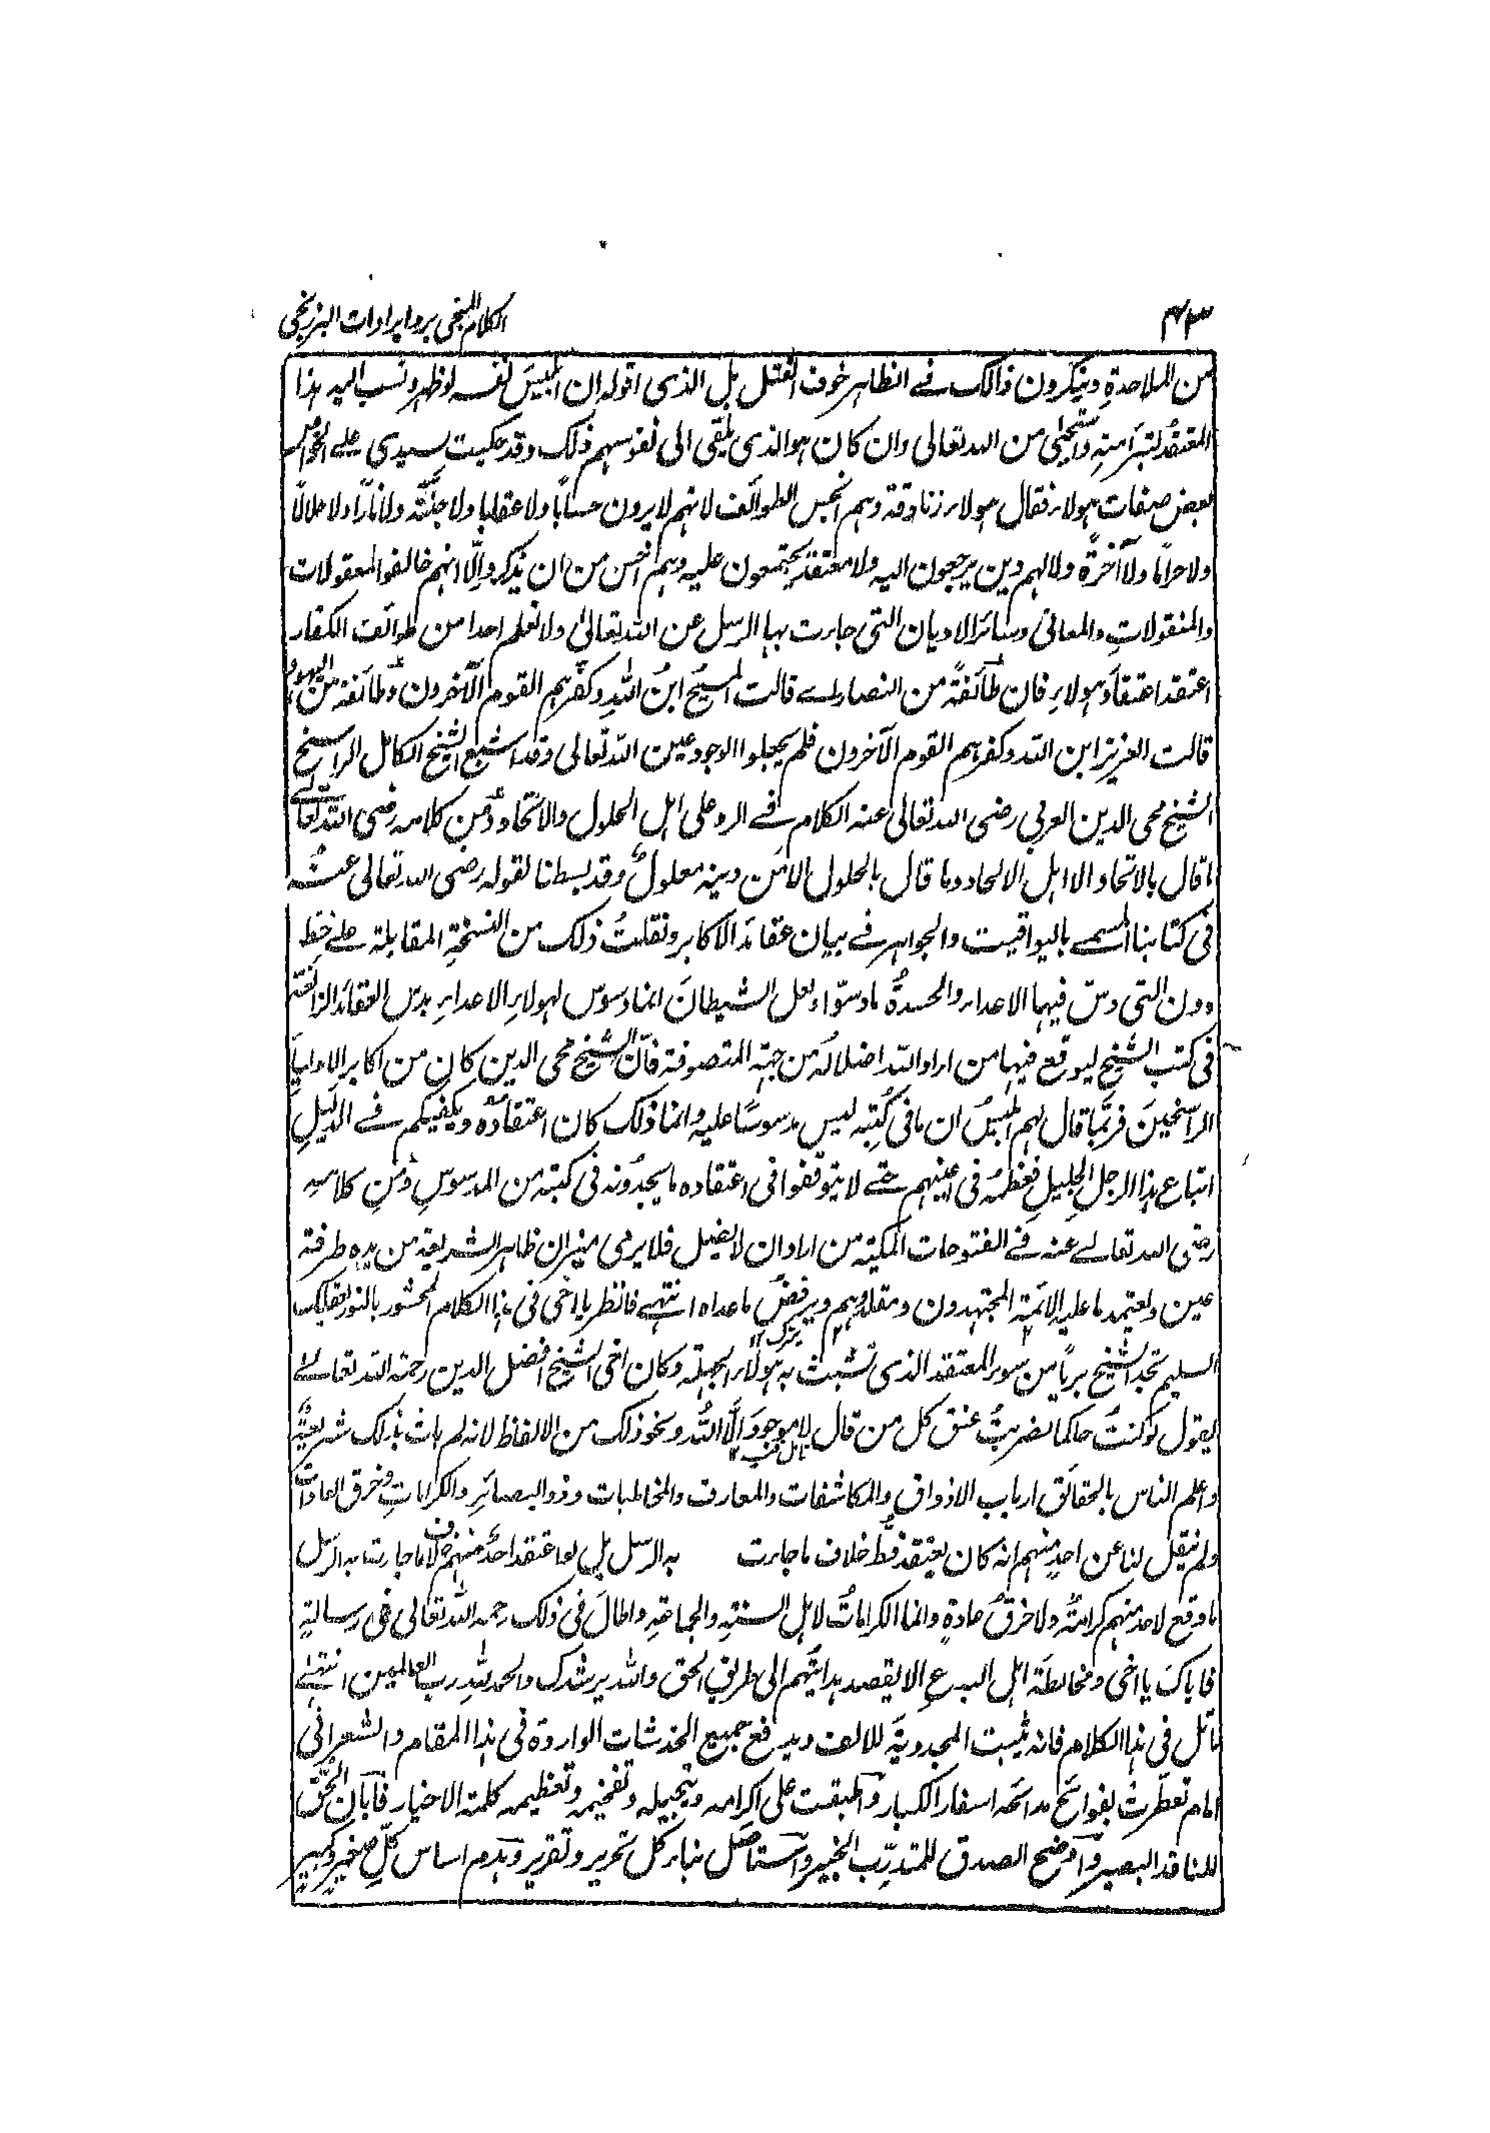 ٤٣ الكلام المنجى برد ايرادات البرزنجى
من الملاحدة وينكرون ذالك فى الظاهر خوف القتل بل الذى اقوله ان ابليس نفسه لو ظهر ونسب اليه هذا
المعتقد لتبرأ منه واستحيى من الله تعالى وان كان هو الذى يلقى الى نفوسهم ذلك وقد حكيت لسيدى على الخواص
بعض صفات هولاء فقال هولاء زنادقة وهم انجس الطوائف لانهم لا يرون حسابًا ولا عقابا ولا جنّة ولا نارًا ولا حلالًا
ولا حرامًا ولا آخرةً ولا لهم دين يرجعون اليه ولا معتقد يجتمعون عليه وهم اخس من ان يذكروا لانهم خالفوا المعقولات
والمنقولات والمعانى وسائر الاديان التى جاءت بها الرسل عن الله تعالى ولا نعلم احدا من طوائف الكفار
اعتقد اعتقاد هولاء فان طائفةً من النصارى قالت المسيح ابن الله وكفرهم القوم الآخرون وطائفة من اليهود
قالت العزيز ابن الله وكفرهم القوم الآخرون فلم يجعلوا الوجود عين الله تعالى وقد اشبع الشيخ الكامل الراسخ
الشيخ محى الدين العربى رضى الله تعالى عنه الكلام فى الرد على اهل الحلول والاتحاد ومن كلامه رضى الله تعالى
ما قال بالاتحاد الا اهل الالحاد وما قال بالحلول الا من دينه معلول وقد بسطنا نقوله رضى الله تعالى عنه
فى كتابنا المسمى باليواقيت والجواهر فى بيان عقائد الاكابر ونقلتُ ذلك من النسخة المقابلة على خط
دون التى دسّ فيها الاعداء والحسدةُ ما دسّوا ولعل الشيطان انما وسوس لهولاء الاعداء بدسّ العقائد الزائغة
فى كتب الشيخ ليوقع فيها من اراد الله اضلاله من جهة المتصوفة فانّ الشيخ محى الدين كان من اكابر الاولياء
الراسخين فربّما قال لهم ابليس ان ما فى كُتبه ليس مدسوسًا عليه وانما ذلك كان اعتقاده ويكفيكم فى الدليل
اتباع هذا الرجل الجليل فعظمه فى اعينهم حتى لا يتوقفوا فى اعتقاده ما يجدونه فى كتبه من المدسوس ومن كلامه
رضى الله تعالى عنه فى الفتوحات المكية من اراد ان لا يضل فلا يرمى ميزان ظاهر الشريعة من يده طرفة
عين وليعتمد ما عليه الائمة المجتهدون ومقلدوهم ويرفض ما عداه انتهى فانظر يا اخى فى هذا الكلام المحشور بالنور بقلبك
يترك ١٢
السليم تجد الشيخ بريًا من سوء المعتقد الذى تشبث به هولاء الجهلة وكان اخى الشيخ افضل الدين رحمة الله تعالى
يقول لو كنتُ حاكما لضربتُ عنق كل من قال لا موجود الّا الله ونحو ذلك من الالفاظ لانه لم يات بذلك شريعة
واعلم الناس بالحقائق ارباب الاذواق والمكاشفات والمعارف والمخاطبات وذو البصائر والكرامات وخرق العادات
ولم ينقل لنا عن احدٍ منهم انه كان يعتقد قط خلاف ما جاءت به الرسل بل لو اعتقد احد منهم خلاف ما جاءت به الرسل
ما وقع لاحد منهم كرامةٌ ولا خرقُ عادةٍ وانما الكراماتُ لاهل السنة والجماعة واطال فى ذلك رحمه الله تعالى فى رسالةٍ
فاياك يا اخى ومخالطة اهل البدع الا بقصد هدايتهم الى طريق الحق والله يرشدك والحمد لله رب العالمين انتهى
تأمل فى هذا الكلام فانه يثبت المجددية للالف ويدفع جميع الخدشات الواردة فى هذا المقام والشعرانى
امام تعطّرت بفوائح مدائحه اسفار الكبار واطبقت على اكرامه وتبجيله وتفخيمه وتعظيمه كلمة الاخيار فابان الحق
للناقد البصير واوضح الصدق للمتدرّب الخبير واستأصل بناء كل تحرير وتقرير وهدم اساس كلّ صغير وكبير